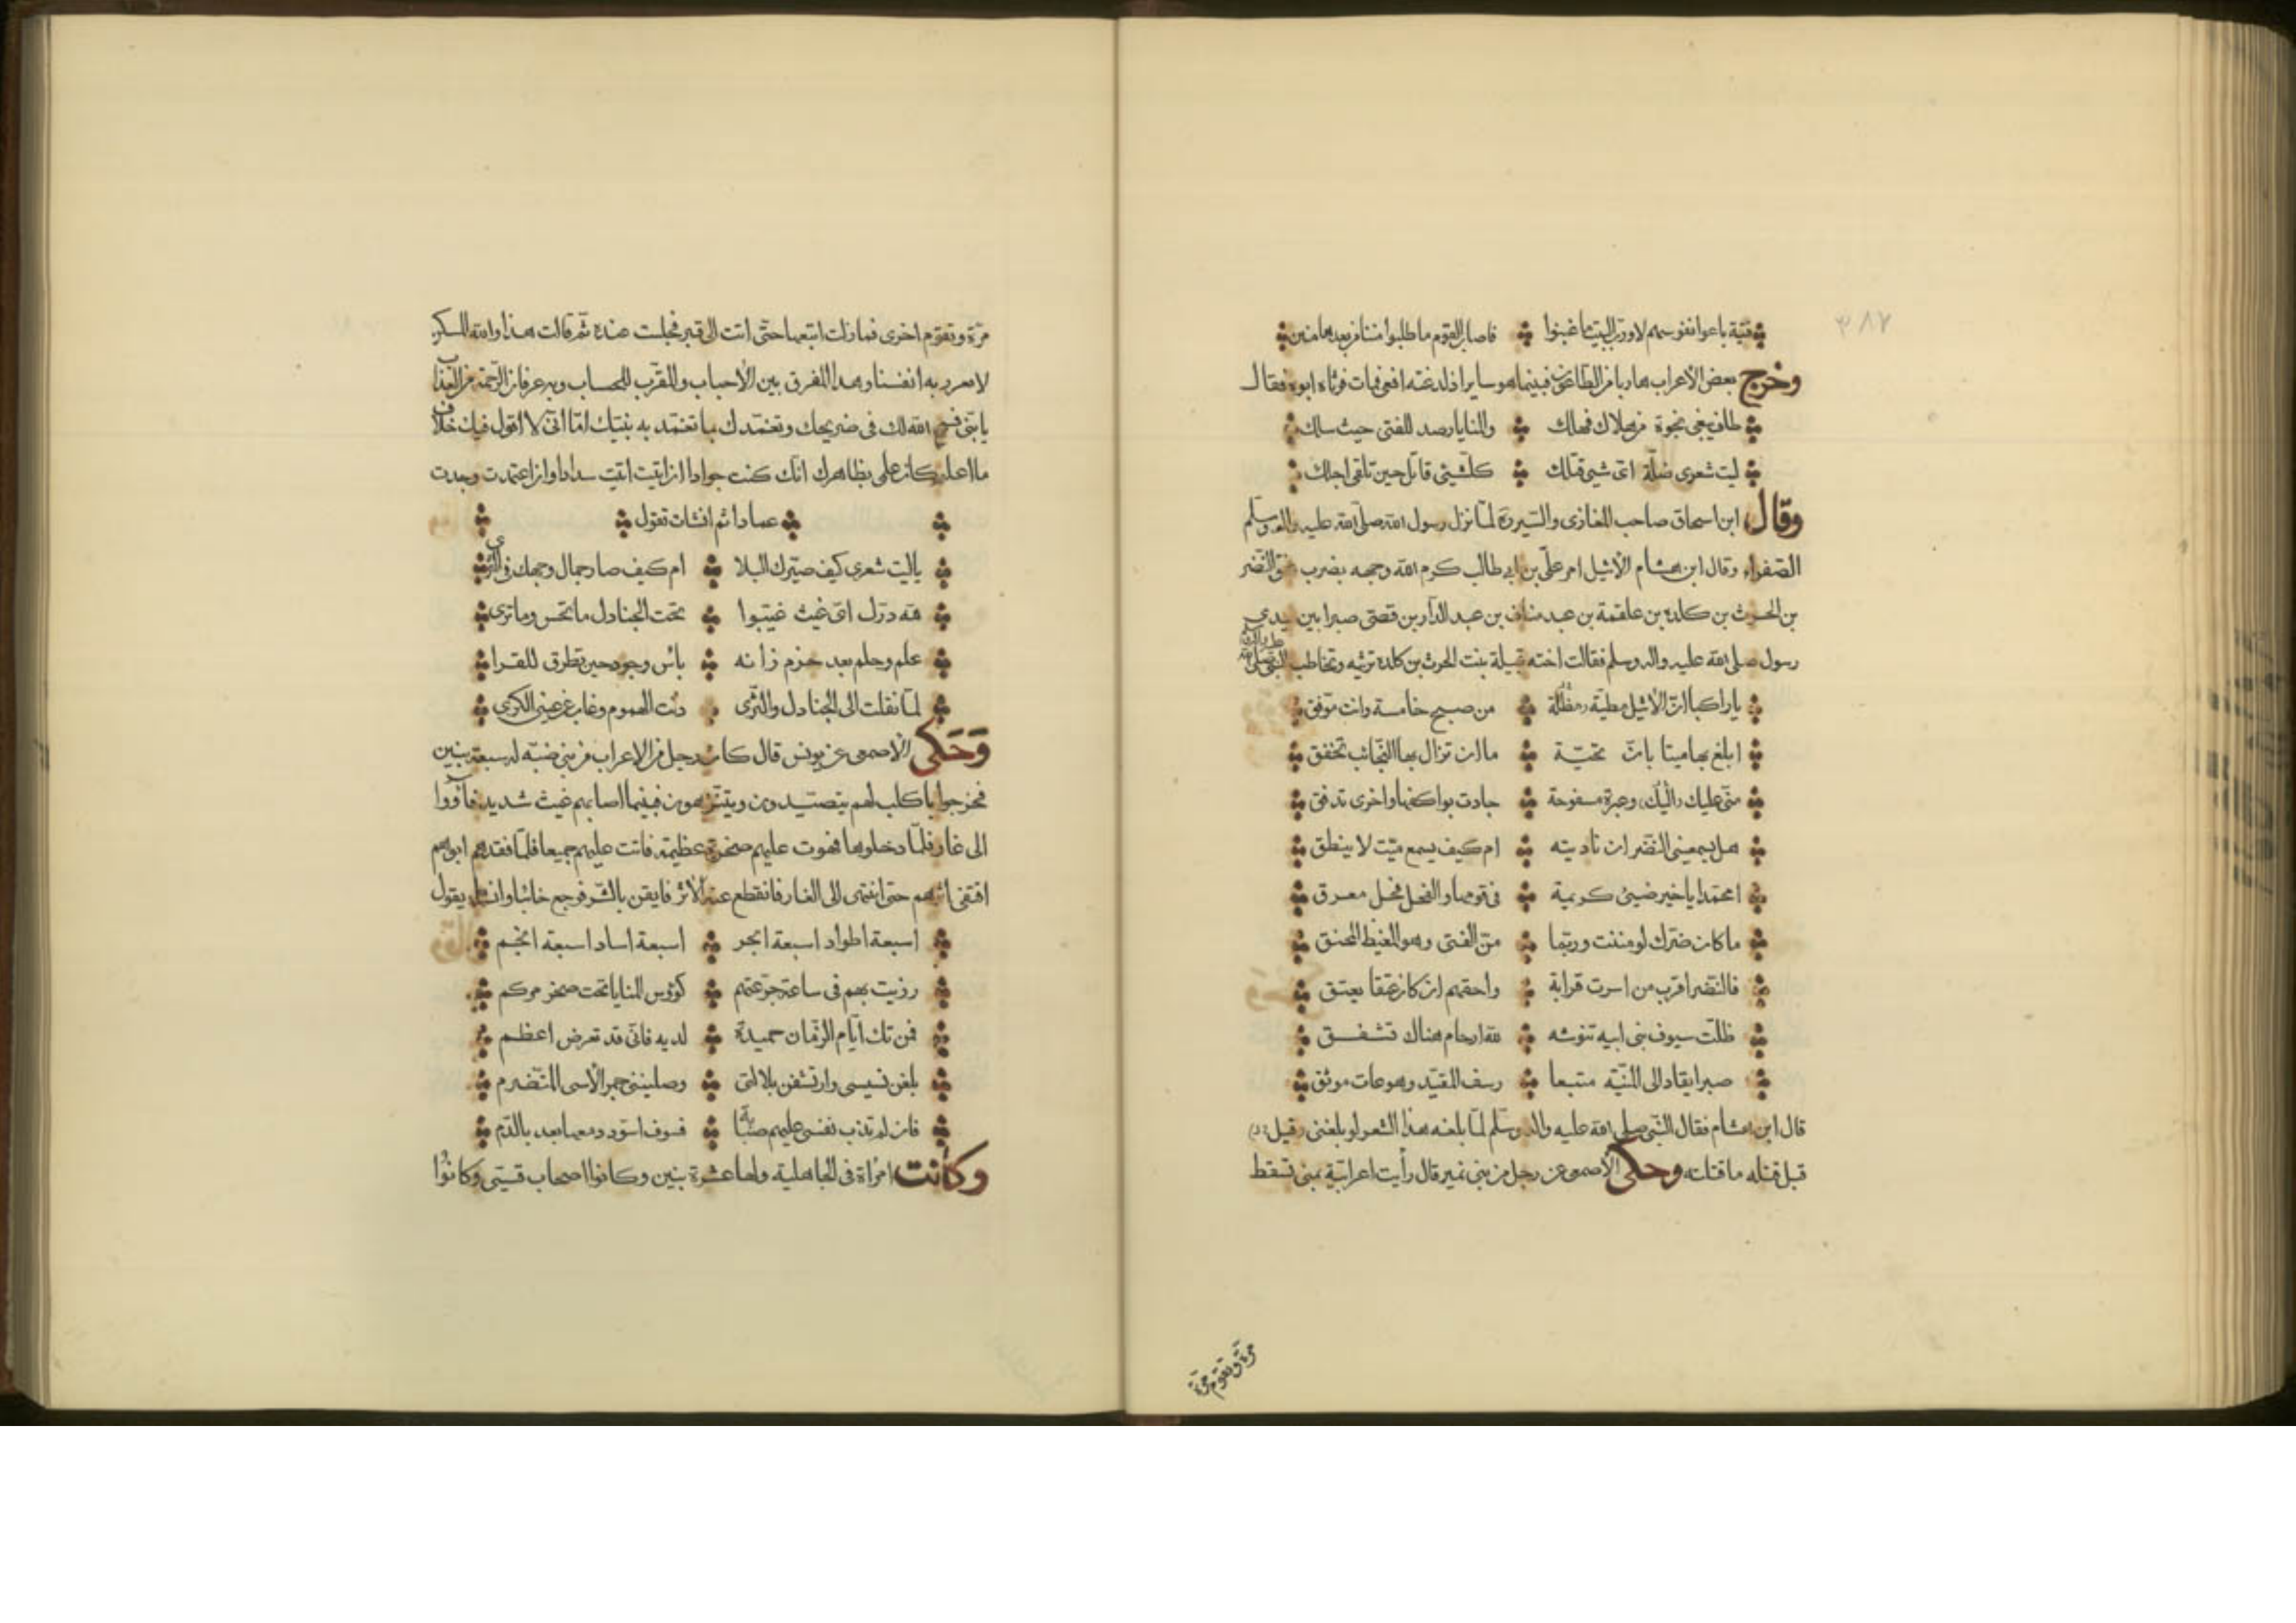 ٣٨٧
فتية باعوا نفوسهم لا ورب البيت ما غبنوا فاصاب القوم ما طلبوا
وخرج بعض الأعراب هاربا من الطاعون فبينما هو سايرا اذ لدغته افعى فمات فرثاه ابوه فقال
طاف يبغى نجوة من هلاك فهلك والمنايا رصد للفتى حيث سلك
ليت شعرى ضلّة اىّ شيئ قتلك كلّ شيئ قاتل حين تلقى اجلك
وقال ابن اسحاق صاحب المغازى والسّير لمّا نزل رسول الله صلى الله عليه واله وسلم
الصّفراء وقال ابن هشام الأثيل امر علىّ بن ابى طالب كرم الله وجهه بضرب عنق النّضر
بن الحرث بن كلدة بن علقمة بن عبد مناف بن عبد الدّار بن قصىّ صبرا بين يدى
رسول صلى الله عليه واله وسلم فقالت اخته قتيلة بنت الحرث بن كلدة ترثيه وتخاطب النبى صلى الله عليه واله
يا راكبا انّ الأثيل مطيّة مظنّة من صبح خامسة وانت موفّق
ابلغ بها ميتا بانّ تحيّة ما ان تزال بها النّجائب تخفق
منّى عليك اليك وعبرة مسفوحة جادت بواكفها واخرى تدفق
هل يسمعنى النّضر ان ناديته ام كيف يسمع ميّت لا ينطق
امحمّد يا خير ضيئ كريمة فى قومها والفحل فحل معرق
ما كان ضرّك لو مننت وربّما منّ الفتى وهو المغيظ المحنق
فالنّضر اقرب من اسرت قرابة واحقهم ان كان عتقا يعتق
ظلّت سيوف بنى ابيه تنوشه لله ارحام هناك تشفق
صبرا يقاد الى المنيّة متبعا رسف المقيّد وهو عات موثق
قال ابن هشام فقال النّبى صلى الله عليه واله وسلم لمّا بلغه هذا الشعر لو بلغنى قبل
قبل قتله ما قتلته وحكى الأصمعى عن رجل من بنى نمير قال رأيت اعرابيّة بمنى تسقط
مرّة وتقوم مرّة
مرّة وتقوم اخرى فما زلت اتبعها حتّى اتت الى قبر فجلست عنده ثم قالت هذا والله المسكن
لا به انفسنا وهذا المفرق بين الأحباب والمقرّب للحساب وبه عرفان الرّحمة من العذاب
يا بنىّ فسح الله لك فى ضريحك وتغمّدك بما تغمّد به نبيّك امّا انّى لا اقول فيك خلاف
ما اعلم كان علمى بظاهرك انّك كنت جوادا ان اتيت اتيت سدادا وان اعتمدت وجدت
عمادا ثم انشات تقول
يا ليت شعرى كيف صيّرك البلا ام كيف صار جمال وجهك فى الثّرى
لله درّك اىّ غيث غيّبوا تحت الجنادل ما تحس وما ترى
علم وحلم بعد حزم زانه باس وجود حين تطرق للقرا
لمّا نقلت الى الجنادل والثّرى دنت الهموم وغاب عن عينى الكرى
وَحَكى الأصمعى عن يونس قال كان رجل من الاعراب من بنى ضبّة له سبعة بنين
فخرجوا باكلب لهم يتصيّدون ويتنزّهون فبينما اصابهم غيث شديد فآووا
الى غار فلمّا دخلوها فهوت عليهم صخرة عظيمة فاتت عليهم جميعا فلمّا فقدهم ابوهم
اقتفى اثرهم حتى انتهى الى الغار فانقطع عنه الأثر فايقن بالشّر فرجع خائبا وانشا يقول
اسبعة اطواد اسبعة ابحر اسبعة اساد اسبعة انجم
رزيت بهم فى ساعة جرّعتهم كؤوس المنايا تحت صخر مركم
فمن تك ايّام الزّمان حميدة لديه فانّى قد تعرض اعظم
بلغن نسيسى وارتشفن بلالتى وصلينى جمر الأسى المتضرم
فان لم تذب نفسى عليهم صبابة فسوف اسوّد دمعها بعد بالدّم
وكانت امراة فى الجاهلية ولها عشرة بنين وكانوا اصحاب قسىّ وكانوا